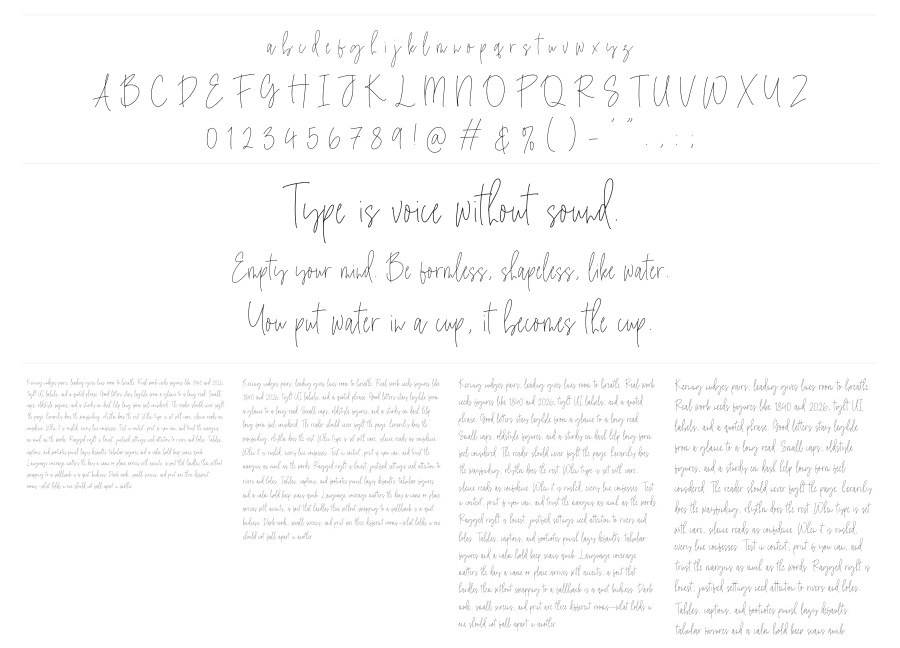 a b c d e f g h i j k l m n o p q r s t u v w x y z
A B C D E F G H I J K L M N O P Q R S T U V W X Y Z
0 1 2 3 4 5 6 7 8 9 ! @ # & % ( ) - ' " . , : ;
Type is voice without sound.
Empty your mind. Be formless, shapeless, like water.
You put water in a cup, it becomes the cup.
Kerning nudges pairs, leading gives lines room to breathe. Real work needs figures like 1890 and 2026,
tight UI labels, and a quoted phrase. Good letters stay legible from a glance to a long read. Small
caps, oldstyle figures, and a sturdy en dash help long form feel considered. The reader should never fight
the page. Hierarchy does the wayfinding, rhythm does the rest. When type is set with care, silence reads as
confidence. When it is rushed, every line confesses. Test in context, print if you can, and trust the margins
as much as the words. Ragged right is honest, justified settings need attention to rivers and holes. Tables,
captions, and footnotes punish lazy defaults, tabular figures and a calm bold keep scans quick.
Language coverage matters the day a name or place arrives with accents, a font that handles them without
snapping to a fallback is a quiet kindness. Dark mode, small screens, and print are three different
rooms—what holds in one should not fall apart in another.
Kerning nudges pairs, leading gives lines room to breathe. Real work needs figures like
1890 and 2026, tight UI labels, and a quoted phrase. Good letters stay legible from
a glance to a long read. Small caps, oldstyle figures, and a sturdy en dash help
long form feel considered. The reader should never fight the page. Hierarchy does the
wayfinding, rhythm does the rest. When type is set with care, silence reads as confidence.
When it is rushed, every line confesses. Test in context, print if you can, and trust the
margins as much as the words. Ragged right is honest, justified settings need attention to
rivers and holes. Tables, captions, and footnotes punish lazy defaults, tabular figures
and a calm bold keep scans quick. Language coverage matters the day a name or place
arrives with accents, a font that handles them without snapping to a fallback is a quiet
kindness. Dark mode, small screens, and print are three different rooms—what holds in one
should not fall apart in another.
Kerning nudges pairs, leading gives lines room to breathe. Real work
needs figures like 1890 and 2026, tight UI labels, and a quoted
phrase. Good letters stay legible from a glance to a long read.
Small caps, oldstyle figures, and a sturdy en dash help long form
feel considered. The reader should never fight the page. Hierarchy does
the wayfinding, rhythm does the rest. When type is set with care,
silence reads as confidence. When it is rushed, every line confesses. Test
in context, print if you can, and trust the margins as much as the words.
Ragged right is honest, justified settings need attention to rivers and
holes. Tables, captions, and footnotes punish lazy defaults, tabular
figures and a calm bold keep scans quick. Language coverage
matters the day a name or place arrives with accents, a font that
handles them without snapping to a fallback is a quiet kindness. Dark
mode, small screens, and print are three different rooms—what holds in
one should not fall apart in another.
Kerning nudges pairs, leading gives lines room to breathe.
Real work needs figures like 1890 and 2026, tight UI
labels, and a quoted phrase. Good letters stay legible
from a glance to a long read. Small caps, oldstyle
figures, and a sturdy en dash help long form feel
considered. The reader should never fight the page. Hierarchy
does the wayfinding, rhythm does the rest. When type is set
with care, silence reads as confidence. When it is rushed,
every line confesses. Test in context, print if you can, and
trust the margins as much as the words. Ragged right is
honest, justified settings need attention to rivers and holes.
Tables, captions, and footnotes punish lazy defaults,
tabular figures and a calm bold keep scans quick.